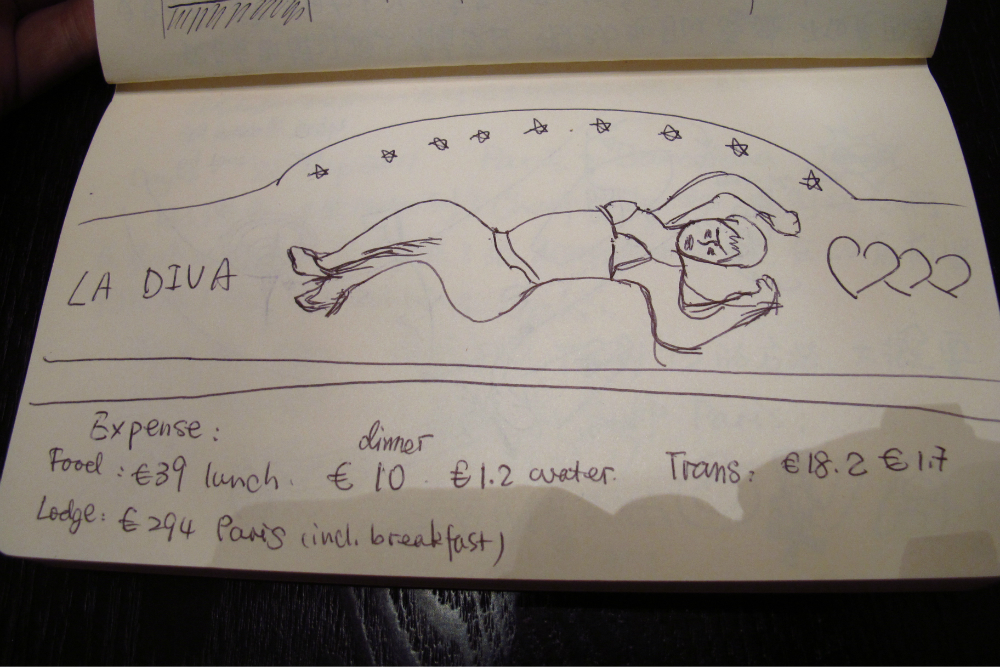 LA DIVA
Expense:
dinner
Food: €39 lunch. € 10. €1.2 water. Trans: €18.2 €1.7
Lodge: €294 Paris (incl. breakfast)